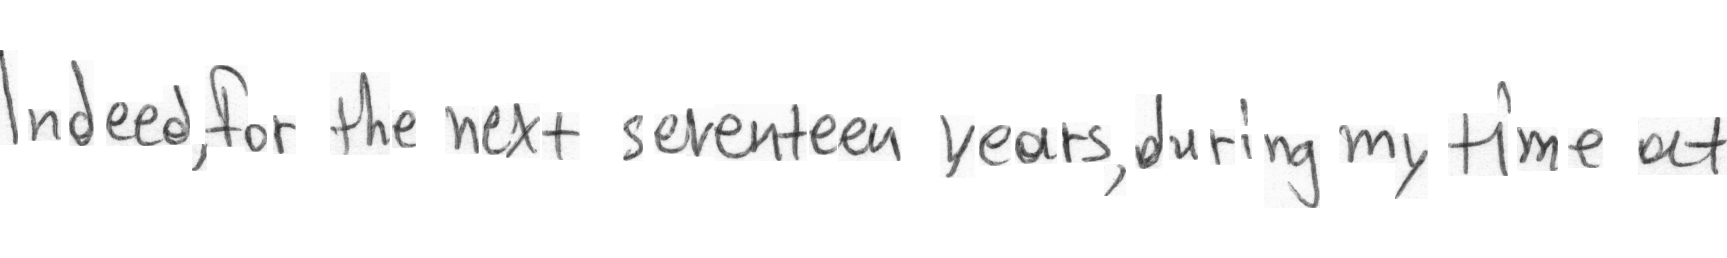 Indeed, for the next seventeen years, during my time at